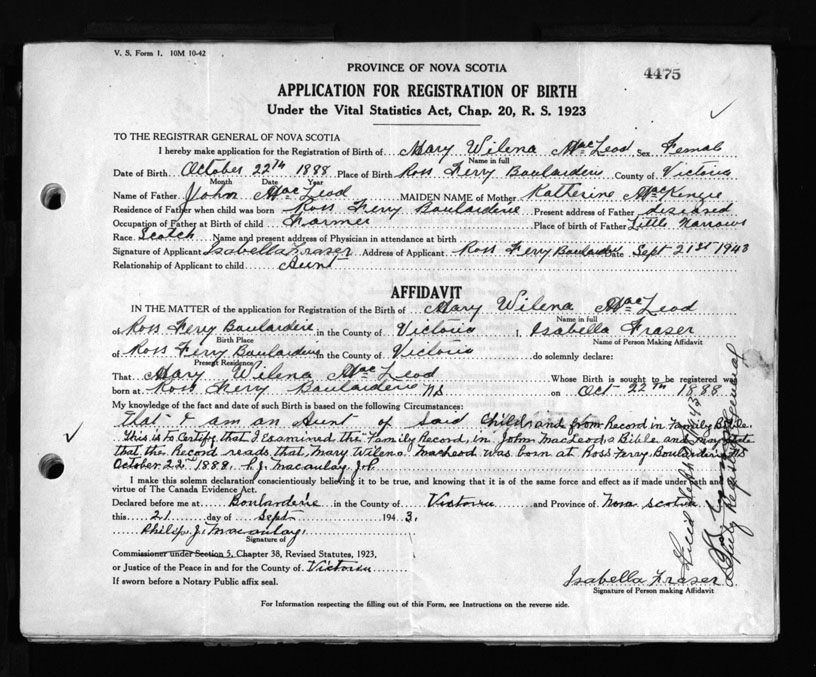 V. S. Form 1. 10M 10-42
PROVINCE OF NOVA SCOTIA
4475
APPLICATION FOR REGISTRATION OF BIRTH
Under the Vital Statistics Act, Chap. 20, R. S. 1923
TO THE REGISTRAR GENERAL OF NOVA SCOTIA
I hereby make application for the Registration of Birth of Mary Wilena MacLeod Sex Female
Name in full
Date of Birth October 22th 1888 Place of Birth Ross Ferry Boularderie County of Victoria
Month Date Year
Name of Father John MacLeod MAIDEN NAME of Mother Katherine MacKenzie
Residence of Father when child was born Ross Ferry Boularderie Present address of Father diseased
Occupation of Father at Birth of child Farmer Place of birth of Father Little Narrows
Race Scotch Name and present address of Physician in attendance at birth
Signature of Applicant Isabella Fraser Address of Applicant Ross Ferry Boulard Date Sept 21st 1943
Relationship of Applicant to child Aunt
AFFIDAVIT
IN THE MATTER of the application for Registration of the Birth of Mary Wilena MacLeod
Name in full
of Ross Ferry Boularderie in the County of Victoria I, Isabella Fraser
Birth Place Name of Person Making Affidavit
of Ross Ferry Boularderie in the County of Victoria do solemnly declare:
Present Residence
That Mary Wilena MacLeod Whose Birth is sought to be registered was
born at Ross Ferry Boularderie NS on Oct 22th 1888
My knowledge of the fact and date of such Birth is based on the following Circumstances:
That I am an Aunt of said Child and from Record in Family Bible.
This is to Certify that I Examined the Family Record in John MacLeods Bible and may state
that the Record reads that Mary Wilena MacLeod was born at Ross Ferry Boularderie NS
October 22th 1888. P.J. Macaulay J.P.
I make this solemn declaration conscientiously believing it to be true, and knowing that it is of the same force and effect as if made under oath and
virtue of The Canada Evidence Act.
Declared before me at Boularderie in the County of Victoria and Province of Nova Scotia
this 21 day of Sept 1943.
Philip J. Macaulay.
Signature of
Commissioner under Section 5, Chapter 38, Revised Statutes, 1923,
or Justice of the Peace in and for the County of Victoria
If sworn before a Notary Public affix seal.
Isabella Fraser
Signature of Person making Affidavit
For Information respecting the filling out of this Form, see Instructions on the reverse side.
Filed Sept 43
Deputy Registrar General